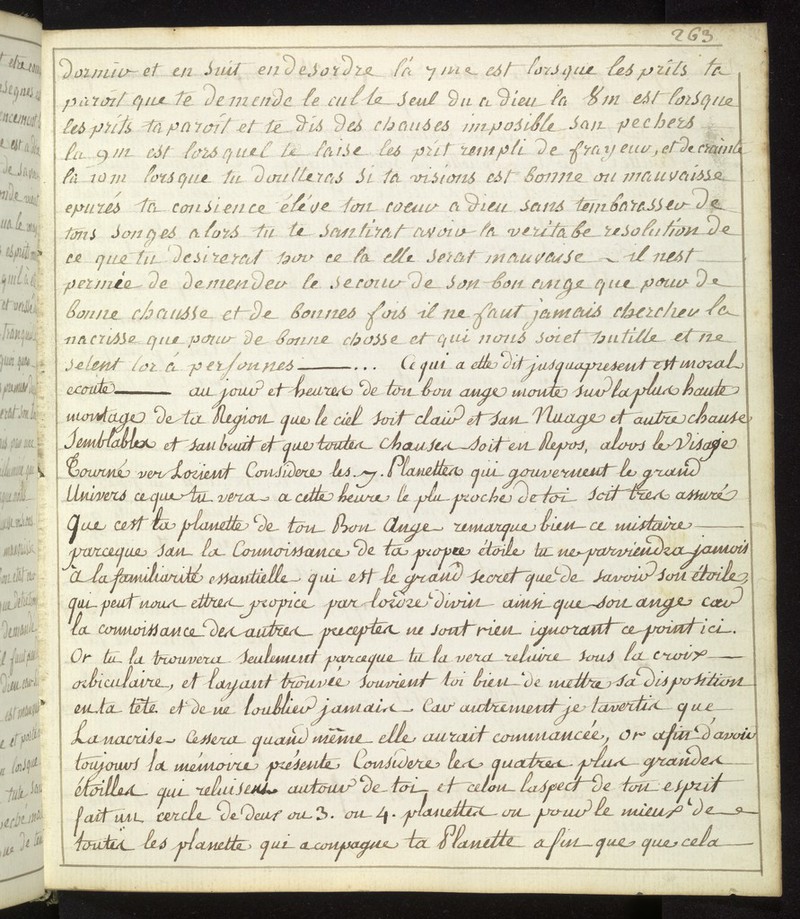 263
dormir et en suit en desordre la 7me est lorsque les prits ta
paroit que te demende le culte seul du a dieu la 8m est lorsque
les prits ta paroit et te dis des chauses imposible san pechers
la 9m est lorsquel te laise les prit rempli de frayeur, et de crainte
la 10m lorsque tu doutteras si ta visions est bonne ou mauvaisse
epurés ta consience éléve ton coeur a dieu sans tembarasser de
tous songes alors tu te santirat avoir la veritabe resolution de
ce que tu desirerat pour ce la elle serat mauvaise ~ il nest
permiée de demender le secour de son bon ange que pour de
bonne chausse et de bonnes fois il ne faut jamais chercher la
nacrisse que pour de bonne chosse et qui nous soiet hutille et ne
selent lor à personnes ——... Ce qui a etté dit jusquapresent est moral
ecoute —— au jour et heures de ton bon ange monte sur la plus haute
montage de ta Region que le ciel soit clair et san Nuage et autre chause
Semblables et san bruit et que toutes chauses soit en Repos, alors le Visage
Tourné ver Lorient Considere les 7. Planettes qui gouvernent le grand
Univers ce que tu vera a cette heure le plu proche de toi soit tres assuré
que cest la planette de ton Bon Ange remarque bien ce mistaire
parceque san la Connoissance de ta propre étoile tu ne parviendra jamois
à la familiarité essantielle qui est le grand secret que de savoir son étoile,
qui peut nous ettres propice par lordre divin ainsi que son ange car
la connoissance des autres preceptes ne sont rien ignorant ce point ici.
Or tu la trouvera Seulement parceque tu la vera reluire sous la croix
orbiculaire, et layant trouvée souvient toi bien de mettre sa disposition
en ta tete et de ne loublier jamais Car autrement je tavertis que
Lanacrise cessera quand même elle aurait commancée, Or afin d'avoir
toujours la mémoire présente Considere les quatres plus grandes
étoilles qui reluisent autour de toi et celon laspect de ton esprit
fait un cercle de deux ou 3. ou 4. planettes ou pour le mieux de
toutes les planette qui aconpagne ta Planette afin que que cela